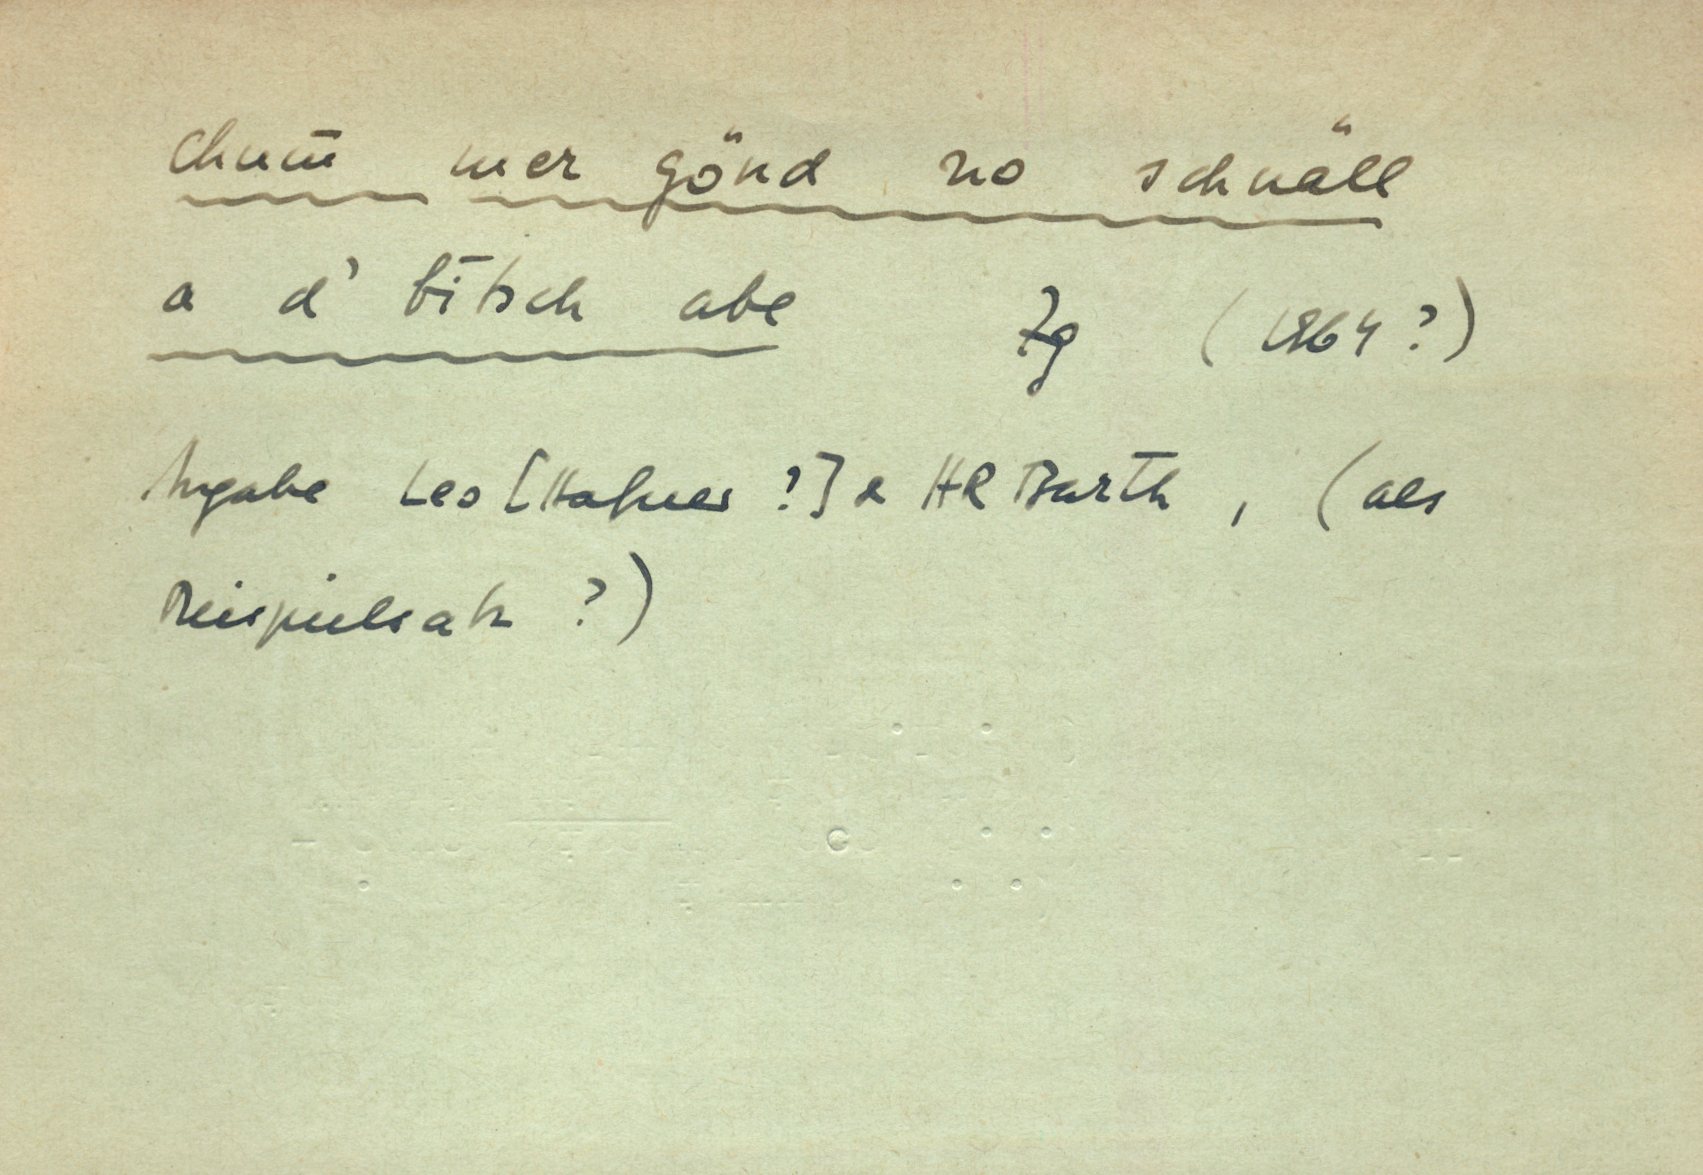 chum̄ mer gönd no schnäll
a d' bītsch abe Zg (1964?)
Angabe Leo [Hafner ?] & HR Barth, (als
Beispielsatz ?)